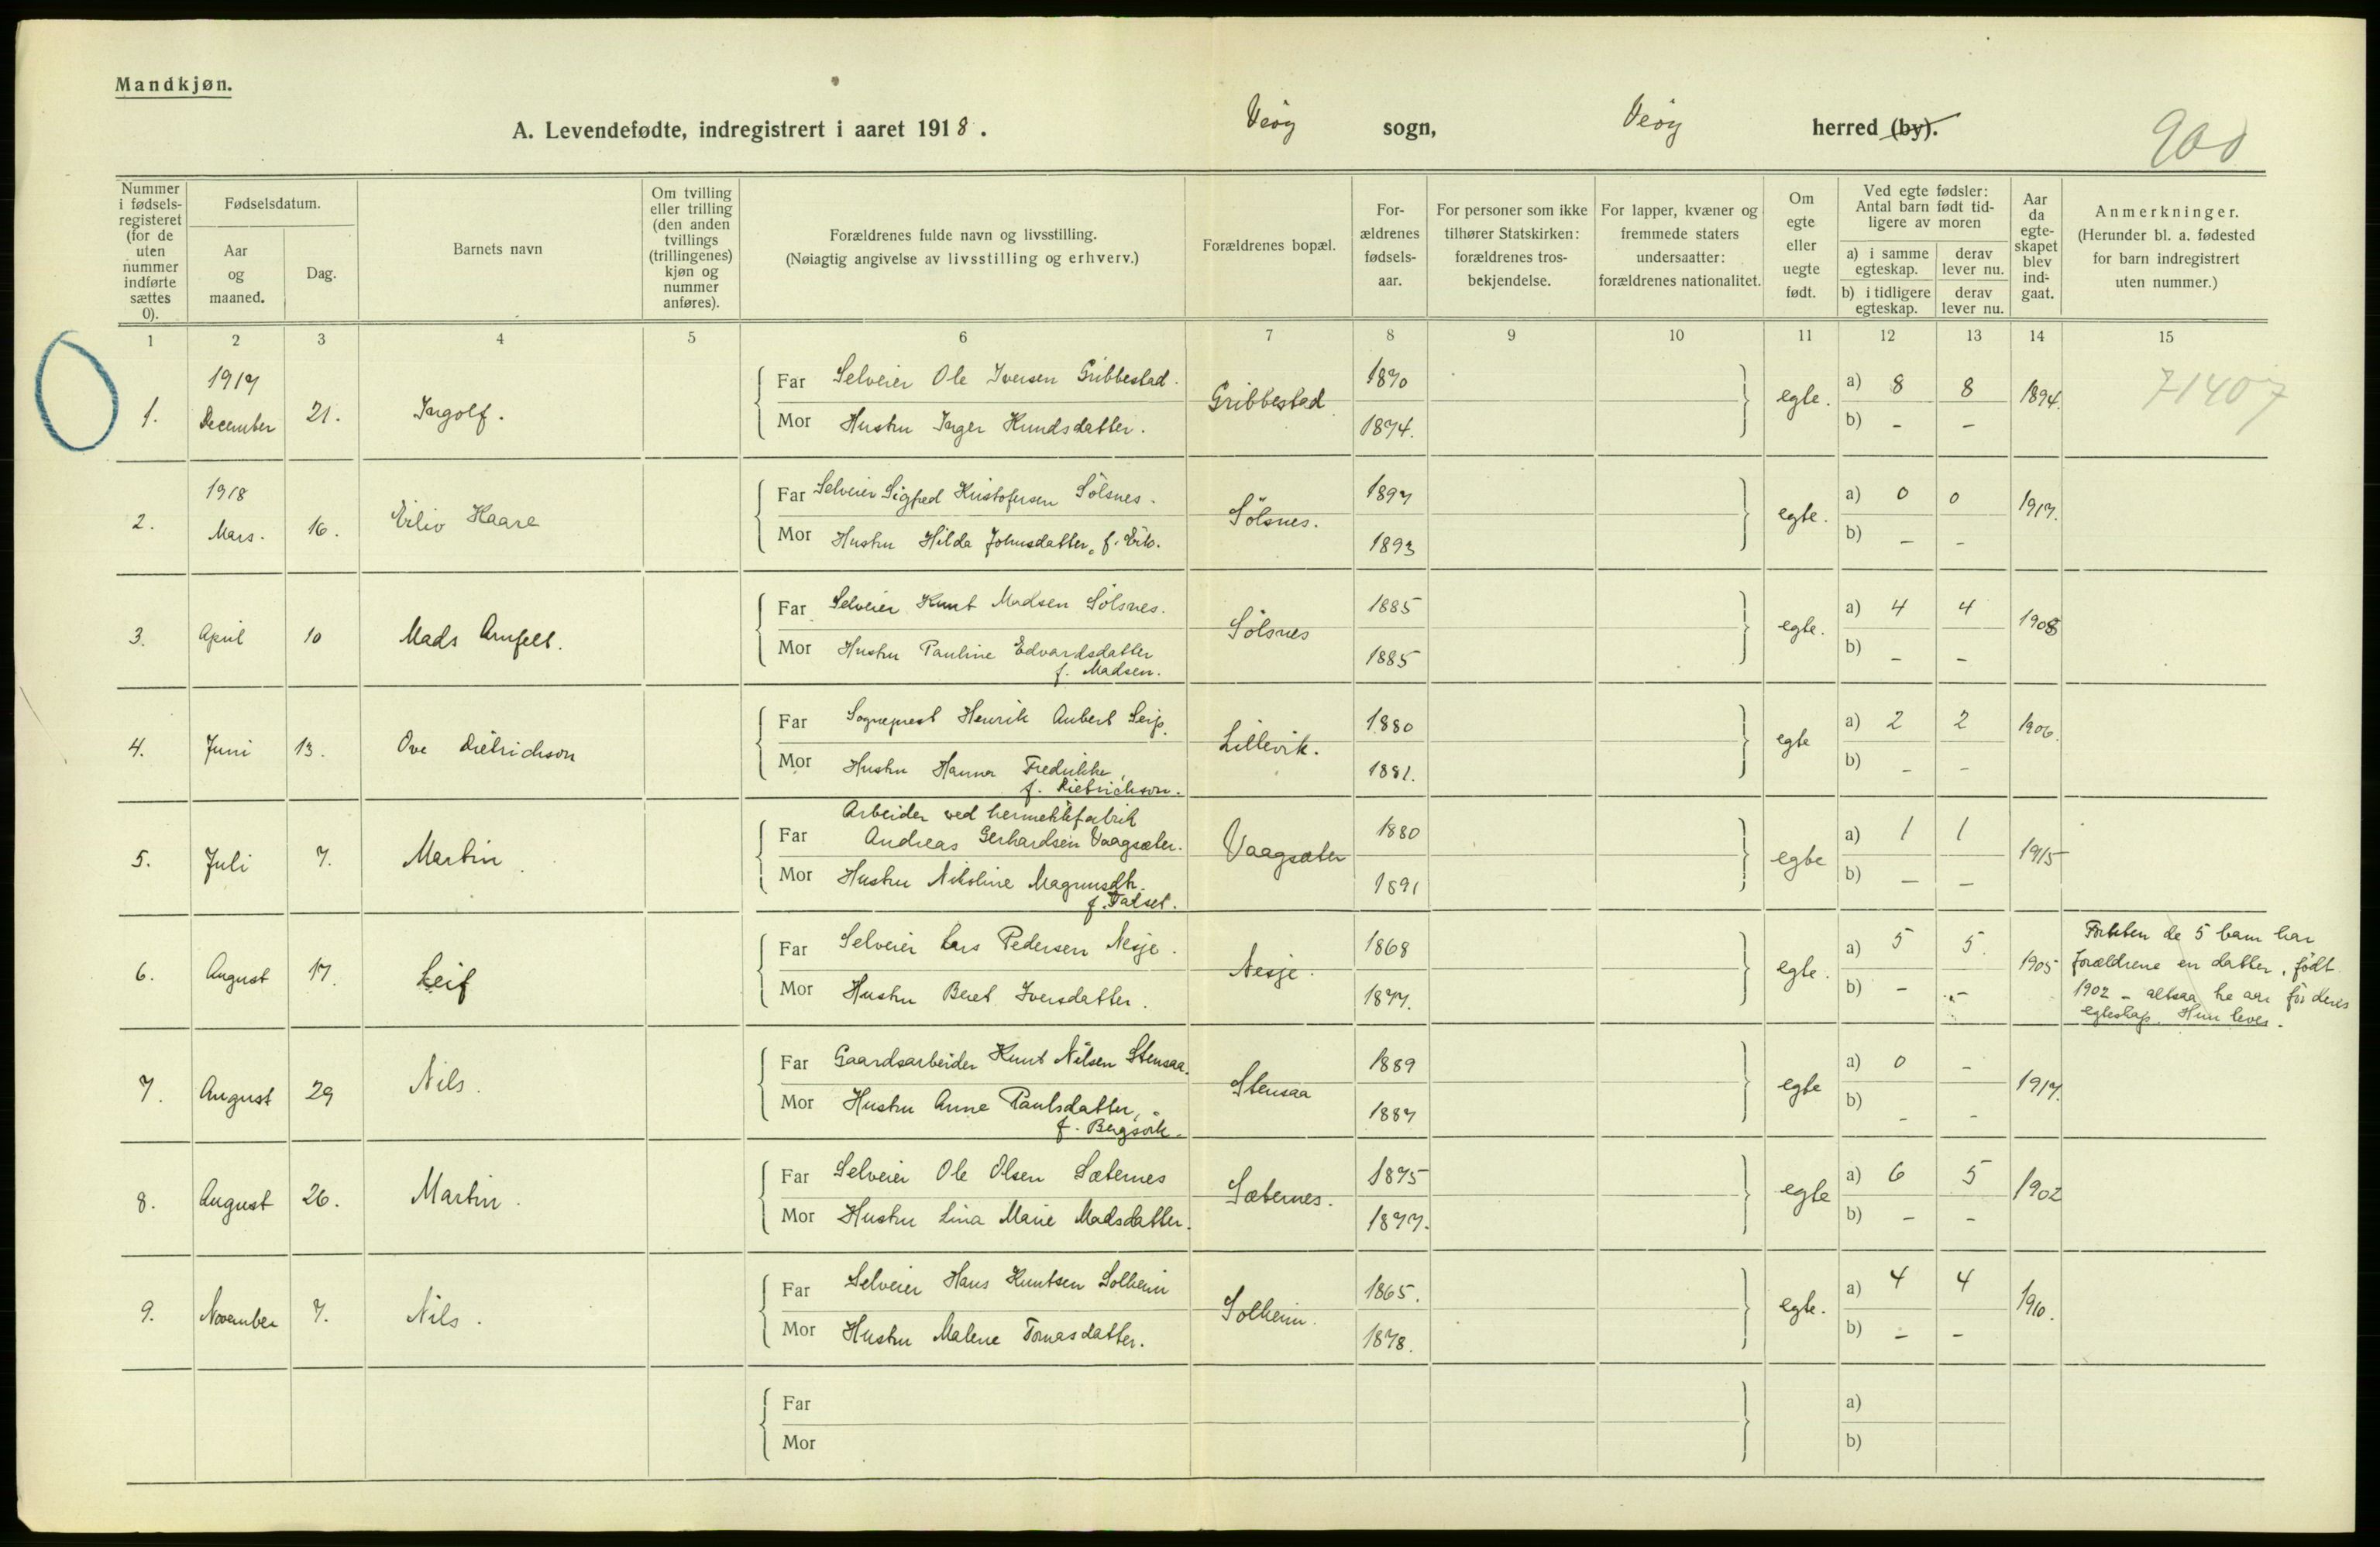 Mandkjøn.
A. Levendefødte, indregistrert i aaret 1918. Veöy sogn, Veöy herred (by).
900
Nummer i fødsels-registeret (for de uten nummer indførte sættes 0).
Fødselsdatum.
Aar og maaned.
Dag.
Barnets navn
Om tvilling eller trilling (den anden tvillings (trillingenes) kjøn og nummer anføres).
Forældrenes fulde navn og livsstilling.
(Nøiagtig angivelse av livsstilling og erhverv.)
Forældrenes bopæl.
For-ældrenes fødsels-aar.
For personer som ikke tilhører Statskirken: forældrenes tros-bekjendelse.
For lapper, kvæner og fremmede staters undersaatter: forældrenes nationalitet.
Om egte eller uegte født.
Ved egte fødsler: Antal barn født tid-ligere av moren
a) i samme egteskap. derav lever nu.
b) i tidligere egteskap. derav lever nu.
Aar da egte-skapet blev ind-gaat.
Anmerkninger.
(Herunder bl. a. fødested for barn indregistrert uten nummer.)
1 2 3 4 5 6 7 8 9 10 11 12 13 14 15
1. 1917 December 21. Ingolf.
Far Selveier Ole Iversen Gribbestad. Gribbestad 1870 egte. a) 8 8 1894. 71407
Mor Hustru Inger Knudsdatter. 1874. b) - -
2. 1918 Mars. 16. Eiliv Kaare
Far Selveier Sigfred Kristofersen Sölsnes. Sölsnes. 1897 egte. a) 0 0 1917.
Mor Hustru Hilda Johnsdatter, f. Eik. 1893 b) - -
3. April 10 Mads Arnfelt.
Far Selveier Knut Madsen Sölsnes. Sölsnes 1885 egte. a) 4 4 1908
Mor Hustru Pauline Edvardsdatter 1885 b) - -
f. Madsen.
4. Juni 13. Ove Dietrichson
Far Sogneprest Henrik Aubert Seip. Lillevik. 1880 egte a) 2 2 1906.
Mor Hustru Hanna Fredrikke, 1881. b) - -
f. Dietrichson.
5. Juli 7. Martin.
Arbeider ved hermetikfabrik
Far Andreas Gerhardsen Vaagsæter. Vaagsæter 1880 egte a) 1 1 1915
Mor Hustru Nikoline Magnusdtr. 1891 b) - -
f. Talset.
6. August 17. Leif
Far Selveier Lars Pedersen Nesje. Nesje. 1868 egte. a) 5 5. 1905
Mor Hustru Beret Iversdatter. 1877. b) - -
Foruten de 5 barn har
forældrene en datter, født
1902 - altsaa tre aar før deres
egteskap. Hun lever.
7. August 29 Nils.
Far Gaardsarbeider Knut Nilsen Stensaa. Stensaa 1889 egte a) 0 - 1917.
Mor Hustru Anne Paulsdatter, 1887 b) - -
f. Bergsvik.
8. August 26. Martin.
Far Selveier Ole Olsen Sæternes Sæternes. 1875 egte a) 6 5 1902
Mor Hustru Lina Marie Madsdatter. 1877. b) - -
9. November 7. Nils.
Far Selveier Hans Knutsen Solheim Solheim. 1865. egte. a) 4 4 1910.
Mor Hustru Malene Tomasdatter. 1878. b) - -
Far a)
Mor b)